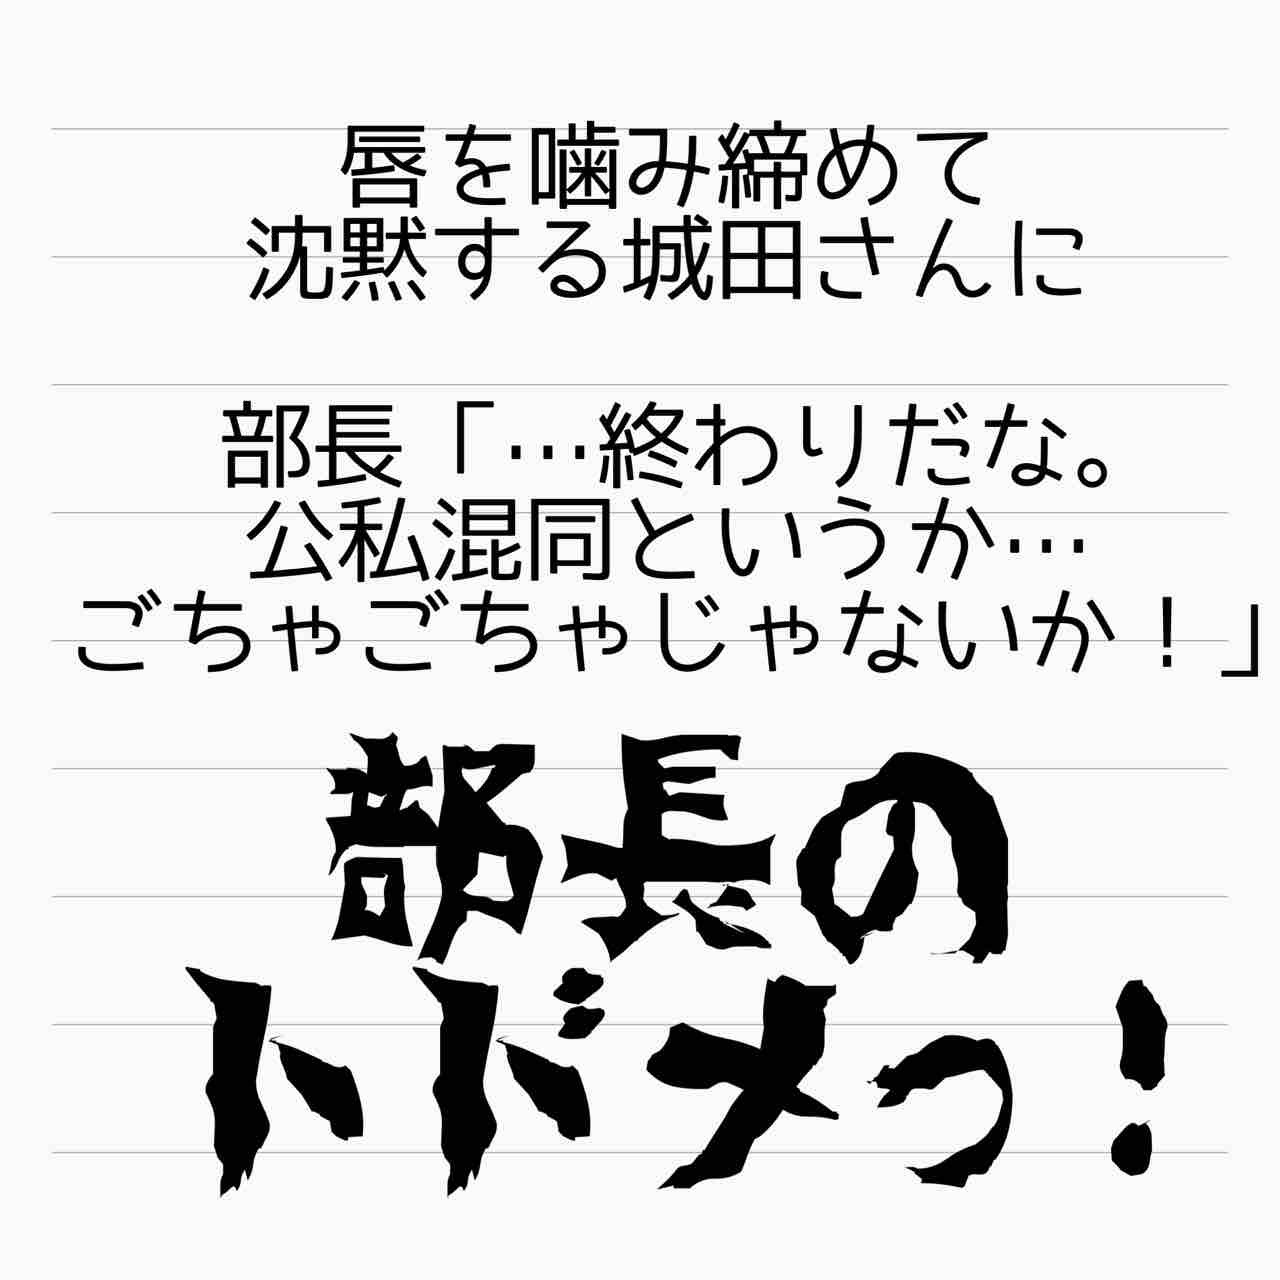 唇を噛み締めて
沈黙する城田さんに
部長「…終わりだな。
公私混同というか…
ごちゃごちゃじゃないか！」
部長の
トドメっ！